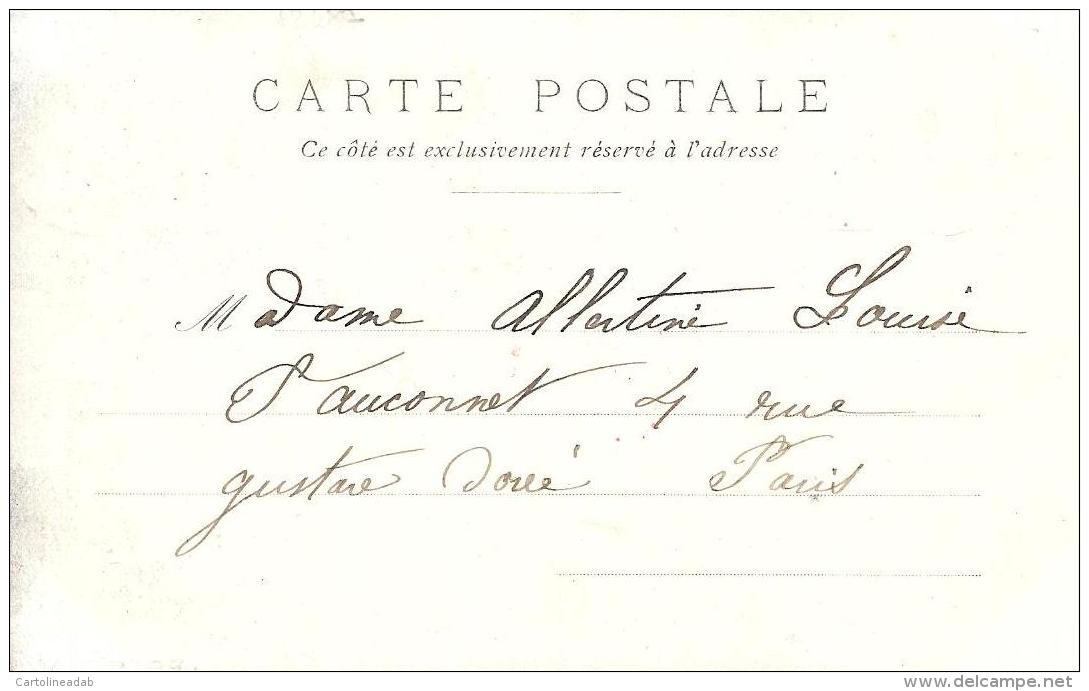 CARTE POSTALE
Ce côté est exclusivement réservé à l'adresse
Madame Albertine Louise
Fauconnet 4 rue
gustave Dorée Paris
Cartolineadab
www.delcampe.net